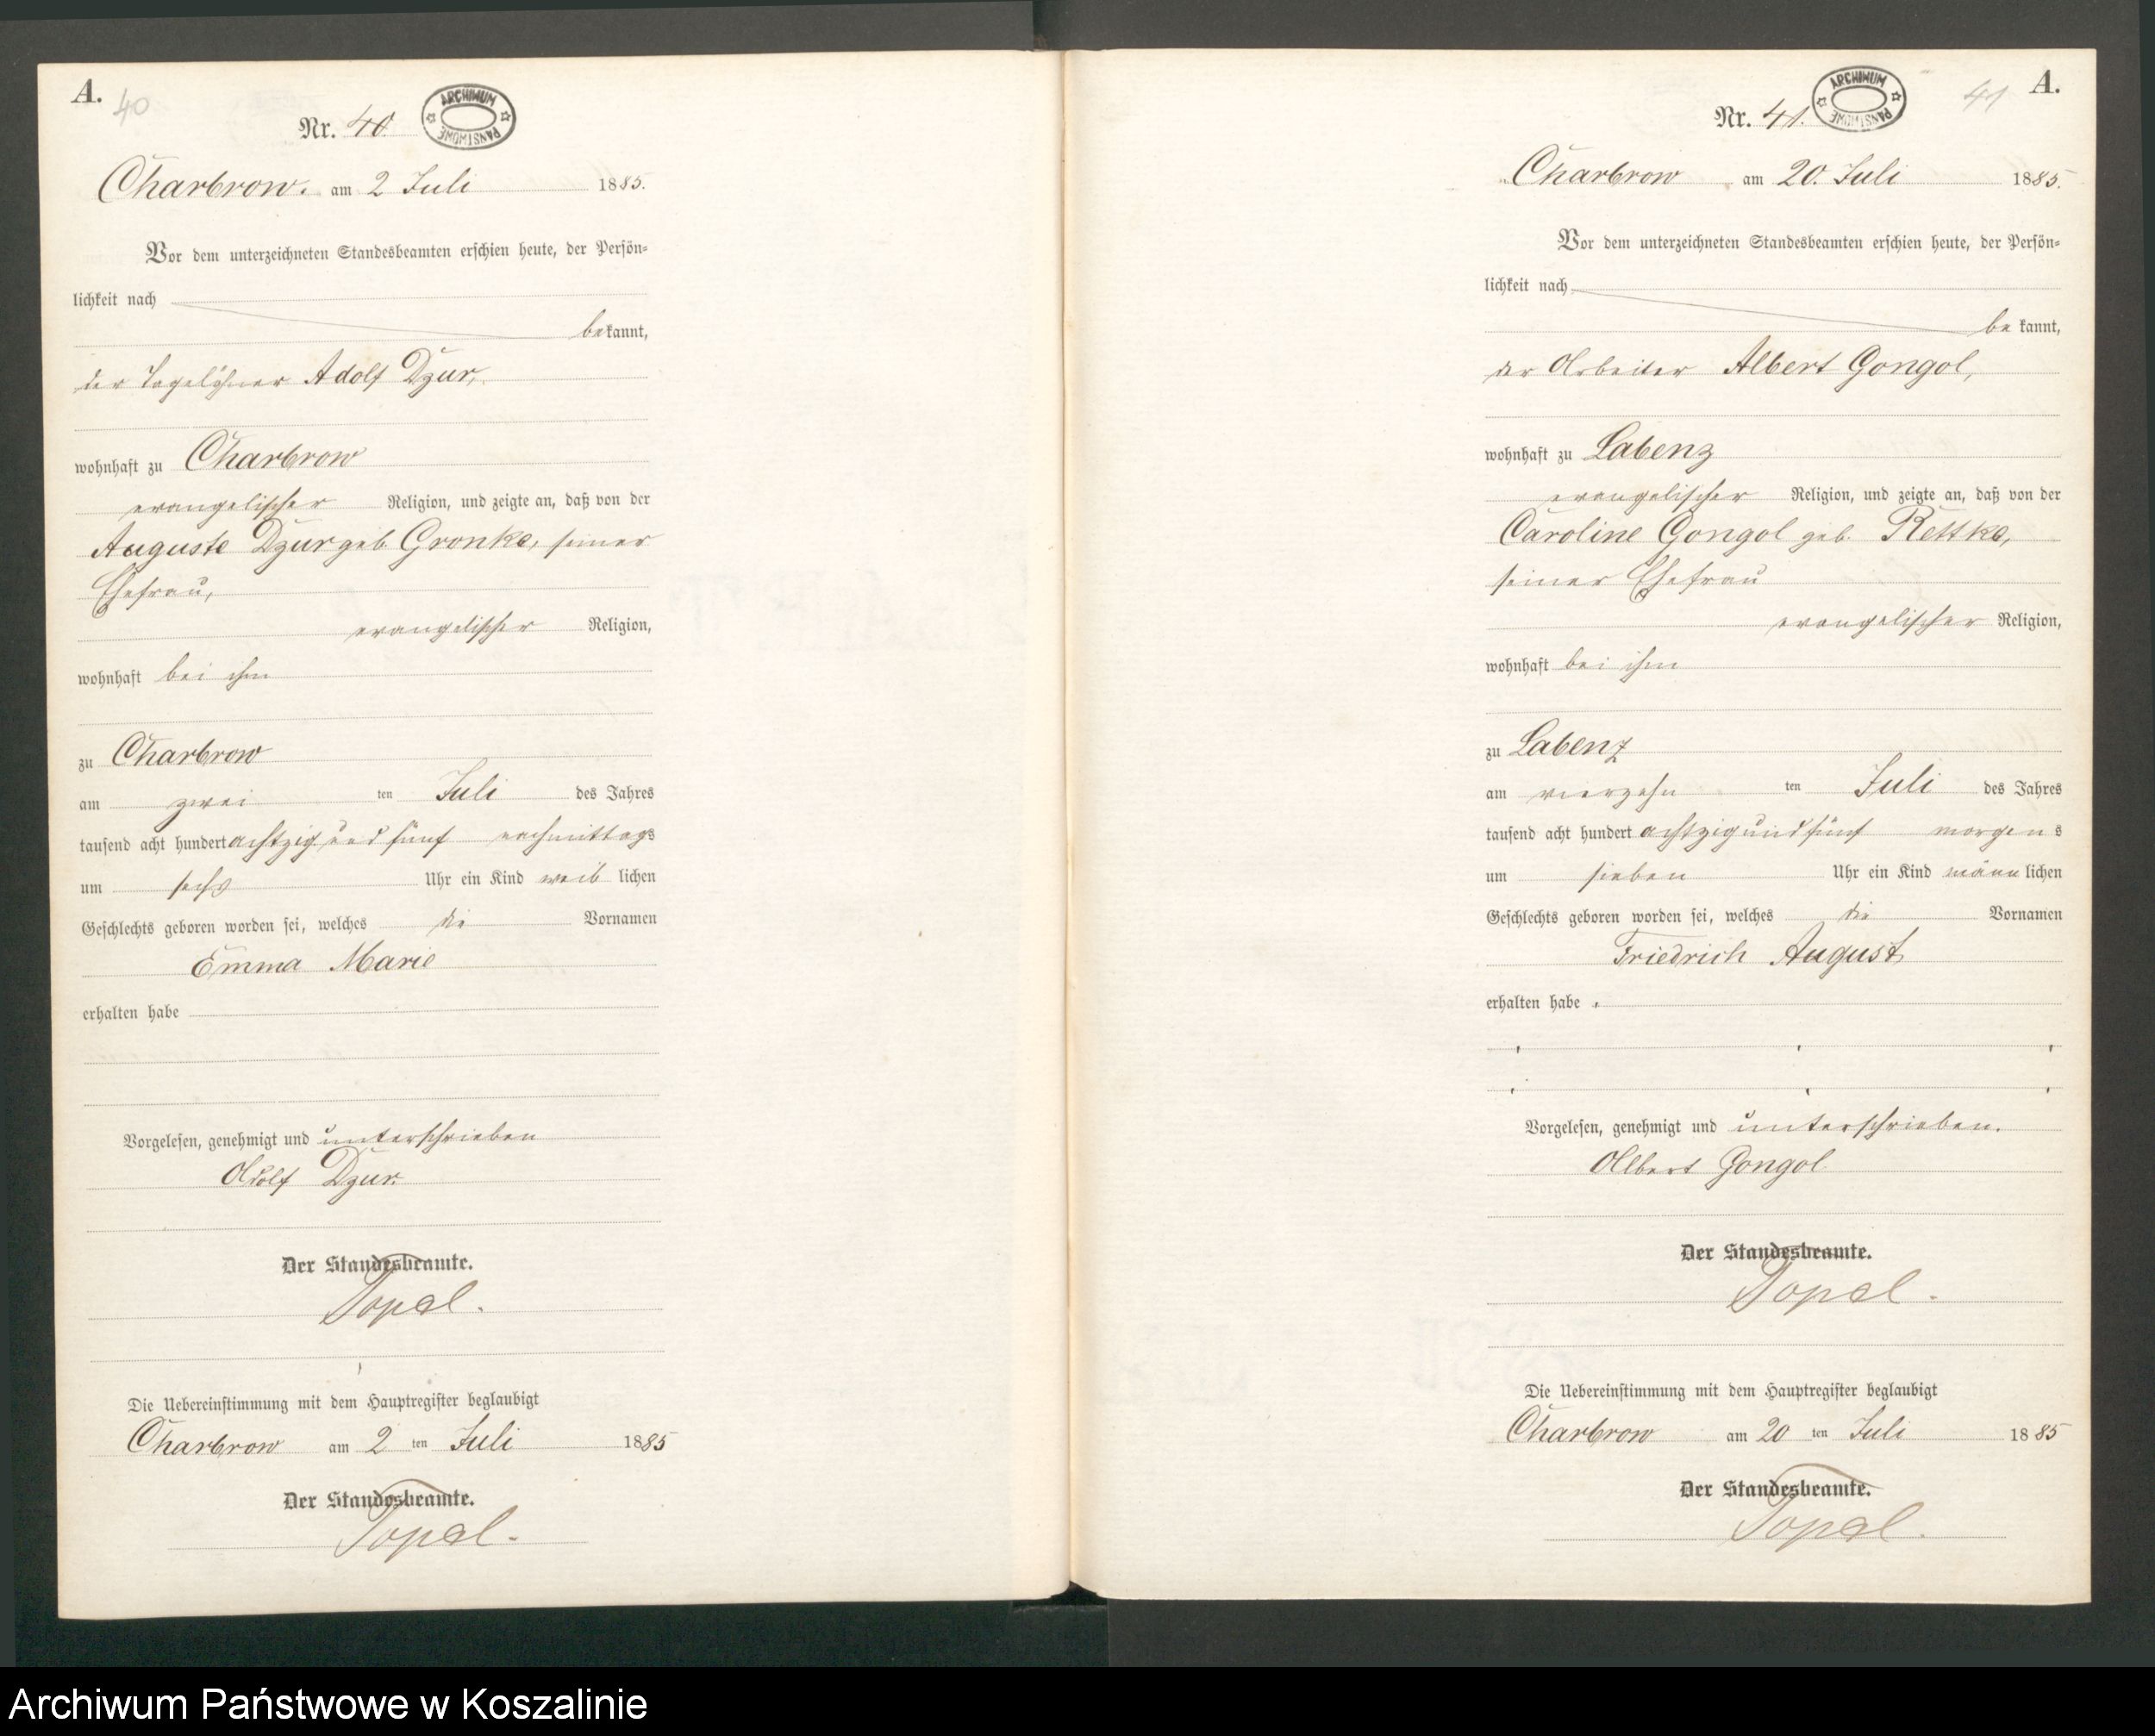 A.
40
Nr. 40.
ARCHIWUM PAŃSTWOWE
Charbrow. am 2 Juli 1885.
Vor dem unterzeichneten Standesbeamten erschien heute, der Persön-
lichkeit nach
bekannt,
der Tagelöhner Adolf Dzur,
wohnhaft zu Charbrow
evangelischer Religion, und zeigte an, daß von der
Auguste Dzur geb. Gronke, seiner
Ehefrau,
evangelischer Religion,
wohnhaft bei ihm
zu Charbrow
am zwei ten Juli des Jahres
tausend acht hundert achtzig und fünf nachmittags
um sechs Uhr ein Kind weiblichen
Geschlechts geboren worden sei, welches die Vornamen
Emma Marie
erhalten habe
Vorgelesen, genehmigt und unterschrieben
Adolf Dzur.
Der Standesbeamte.
Topel.
Die Uebereinstimmung mit dem Hauptregister beglaubigt
Charbrow am 2 ten Juli 1885
Der Standesbeamte.
Topel.
A.
41
Nr. 41.
ARCHIWUM PAŃSTWOWE
Charbrow am 20. Juli 1885.
Vor dem unterzeichneten Standesbeamten erschien heute, der Persön-
lichkeit nach
bekannt,
der Arbeiter Albert Gongol,
wohnhaft zu Labenz
evangelischer Religion, und zeigte an, daß von der
Caroline Gongol geb. Rettke,
seiner Ehefrau
evangelischer Religion,
wohnhaft bei ihm
zu Labenz
am vierzehn ten Juli des Jahres
tausend acht hundert achtzig und fünf morgens
um sieben Uhr ein Kind männlichen
Geschlechts geboren worden sei, welches die Vornamen
Friedrich August
erhalten habe.
Vorgelesen, genehmigt und unterschrieben.
Albert Gongol
Der Standesbeamte.
Topel.
Die Uebereinstimmung mit dem Hauptregister beglaubigt
Charbrow am 20 ten Juli 1885
Der Standesbeamte.
Topel.
Archiwum Państwowe w Koszalinie